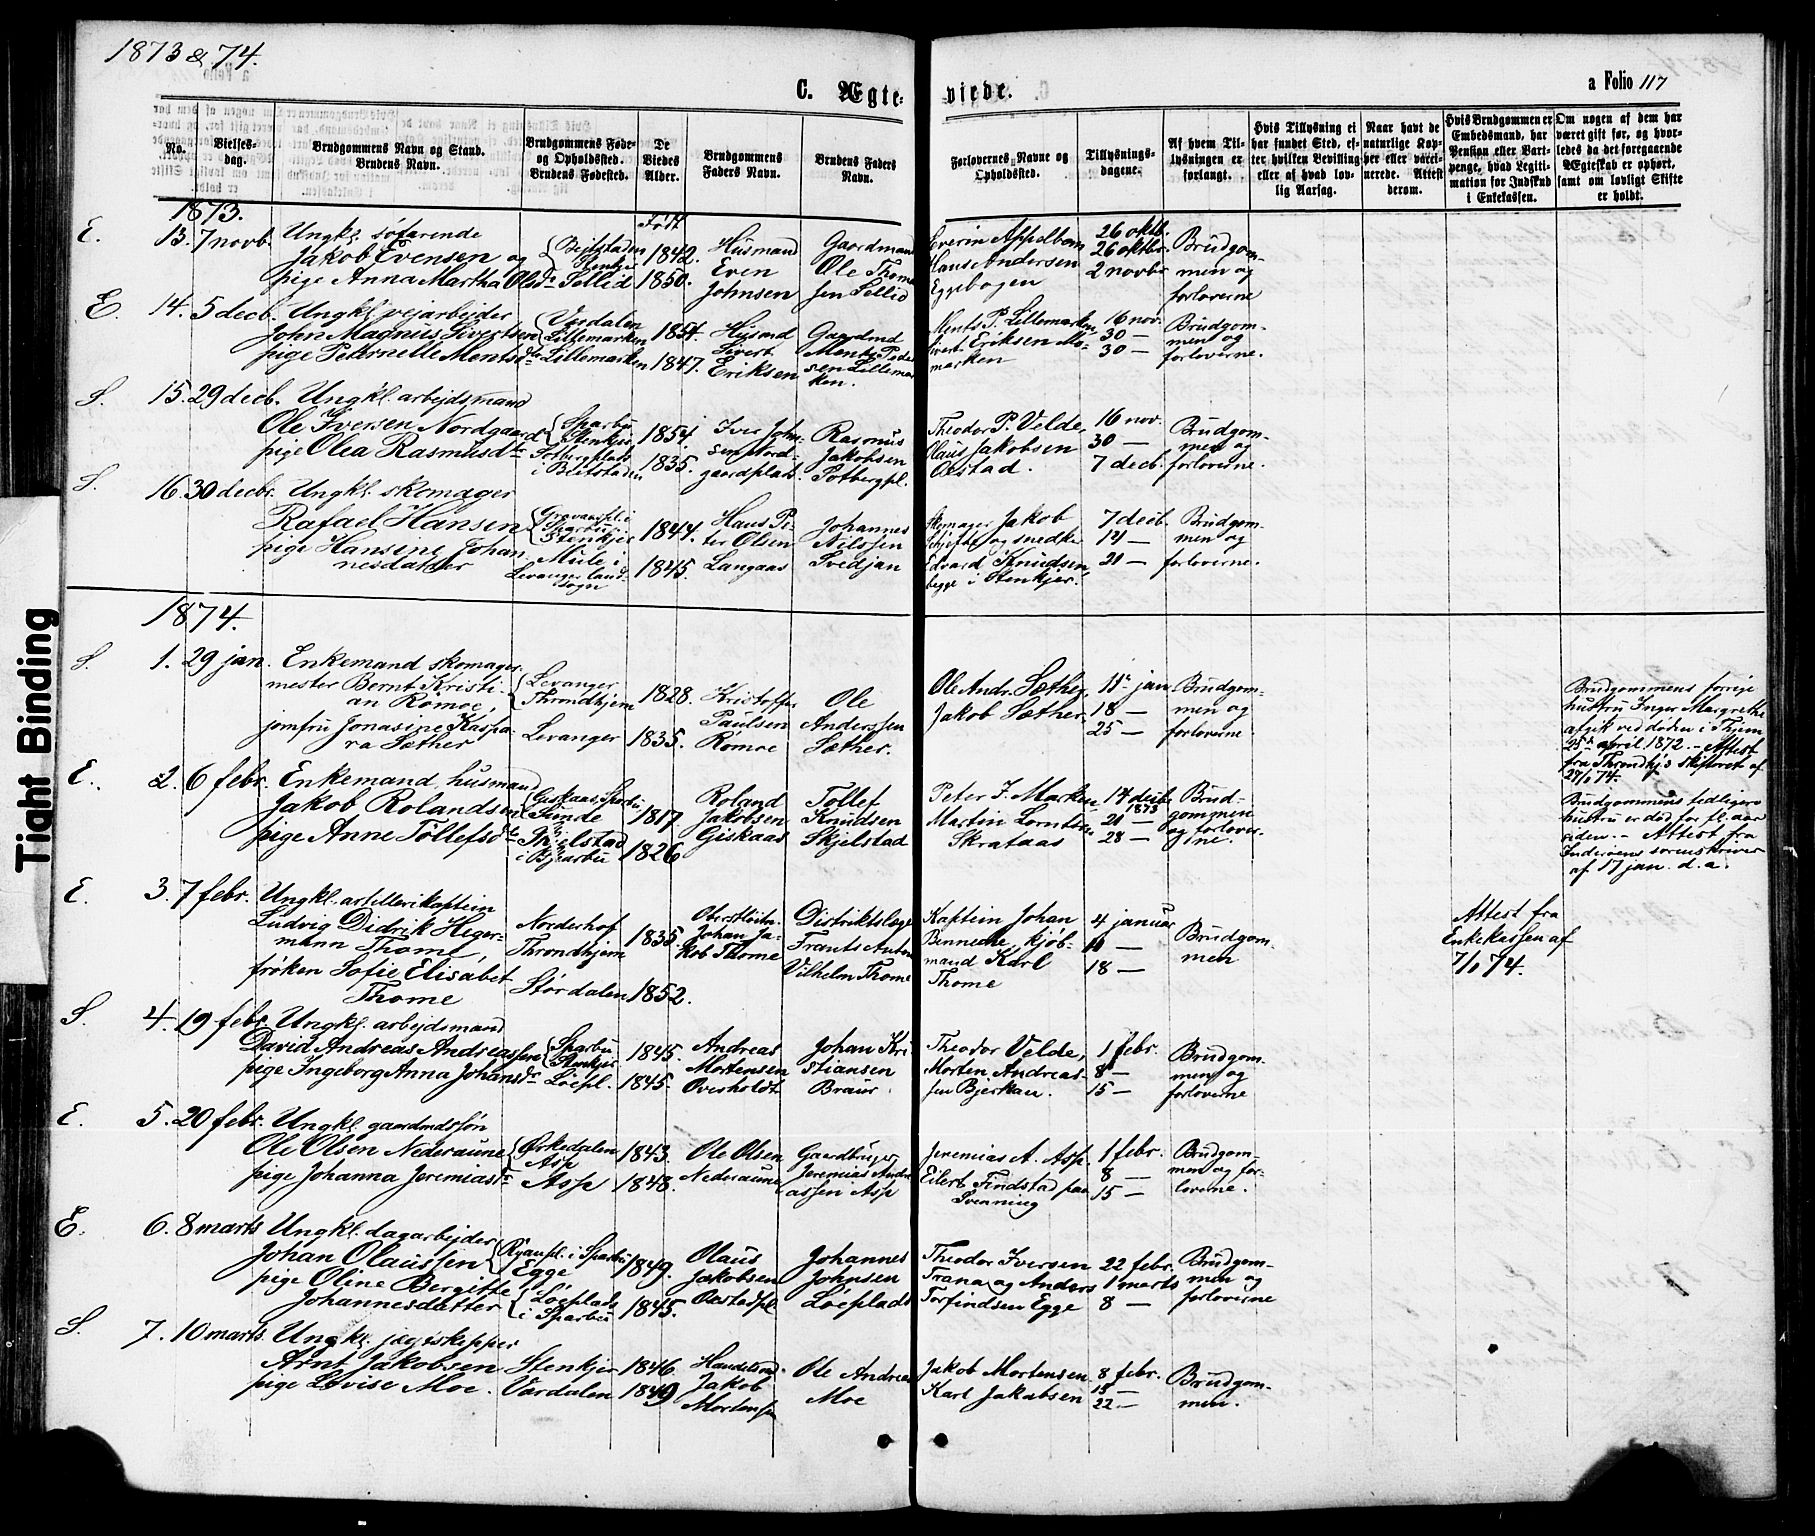 1873 & 74.
C. Ægte-viede.
a Folio 117
No.
Vielses-dag.
Brudgommens Navn og Stand. Brudens Navn.
Brudgommens Føde- og Opholdssted. Brudens Fødested.
De Viedes Alder.
Brudgommens Faders Navn.
Brudens Faders Navn.
Forlovernes Navne og Opholdssted.
Tillysnings-dagene.
Af hvem Tillysningen er forlangt.
Hvis Tillysning ei har fundet Sted, efter hvilken Bevilling eller af hvad lovlig Aarsag.
Naar havt de naturlige Kopper eller vaccinerede. Attest derom.
Hvis Brudgommen er Embedsmand, har Pension eller Vartpenge, hvad Legitimation for Indskud i Enkekassen.
Om nogen af dem har været gift før, og hvorledes da det foregaaende Ægteskab er ophørt, samt om lovligt Skifte er holdt.
1873.
Født
E. 13. 7 novb. Ungkl. søfarende
Jakob Evensen og
pige Anna Martha Olsdr
Beitstaden
Stenkjer
Sellid
1842.
1850.
Husmand
Even
Johnsen
Gaardmand
Ole Thome
sen Sellid
Severin Appelbom
Hans Andersen
Eggebogen
26 oktb.
26 oktbr.
2 novbr
Brudgom-
men og
forloverne
E. 14. 5 decb. Ungkl. vejarbejder
John Magnus Sivertsen
pige Peternelle Mentsdtr
Værdalen
Lillemarken
Lillemarken
1854.
1847.
Husmd
Sivert
Eriksen
Gaardmd
Ments Peder
sen Lillemar
ken.
Ments P. Lillemarken,
Sivert Eriksen Mo-
marken
16 nov.
30 —
30 —
Brudgom-
men og
forloverne.
S. 15. 29 decb. Ungkl. arbejdsmand
Ole Iversen Nordgaard
pige Olea Rasmusdr
Sparbu
Stenkjer
Fotbergplads
i Beitstaden
1854.
1835.
Iver John-
sen Nord-
gaardplads.
Rasmus
Jakobsen
Fotbergpl.
Theodor P. Velde,
Olaus Jakobsen
Oestad.
16 nov.
30 —
7 decb.
Brudgom-
men og
forloverne.
S. 16. 30 decbr. Ungkl. skomager
Rafael Hansen
pige Hansine Johan
nesdatter
Stenkjer
Mule i
Levanger land-
sogn
1844.
1845.
Hans Pe-
ter Olsen
Langaas
Johannes
Nilssen
Svedjan
Skomager Jakob
og snedker
Edvard Knudsen,
begge i Stenkjer.
7 decb.
14 —
21 —
Brudgom-
men og
forloverne.
1874.
S. 1. 29 jan. Enkemand skomager-
mester Bernt Kristi-
an Römoe,
jomfru Jonasine Kaspa-
ra Sæther
Levanger
Throndhjem
Levanger
1828.
1835.
Kristoffer
Paulsen
Römoe
Ole
Anderssen
Sæther.
Ole Andr. Sæther,
Jakob Sæther,
11te jan.
18 —
25 —
Brudgom-
men og
forloverne.
Brudgommens forrige
hustru Inger Margrethe
afgik ved døden i Thjem
25de april 1872. — Attest
fra Throndhj.s skifteret af
27/1 74.
E. 2. 6 febr. Enkemand husmand
Jakob Rolandsen
pige Anne Tollefsdtr
Giskaas, Sparbu
Sunde
Skjelstad
i Sparbu
1817.
1826
Roland
Jakobsen
Giskaas
Tollef
Knudsen
Skjelstad
Peter J. Marken
Martin Lorntsen
Skrataas
14 decb.
1873
21 —
28 —
Brud-
gommen
og forlover-
ne.
Brudgommens tidligere
hustru er død for fl. aar
siden. — Attest fra
Inderøens sorenskriver
af 17 jan. d.a.
E. 3. 7 febr. Ungkl. artillerikaptein
Ludvig Didrik Heger-
mann Thome,
frøken Sofie Elisabet
Thome
Norderhof
Throndhjem
Stördalen
1835.
1852.
Oberstløitn.
Johan Ja-
kob Thome
Distriktslæge
Frants Anton
Vilhelm Thome
Kaptein Johan
Benneche, kjøb-
mand Karl
Thome
4 januar
11 —
18 —
Brudgom-
men
Attest fra
Enkekassen af
7/1 74.
S. 4. 19 febr. Ungkl. arbejdsmand
David Andreas Andreassen
pige Ingeborg Anna Johansdr
Sparbu
Stenkjer
Löepl.
1845.
1845.
Andreas
Mortensen
Overholdt
Johan Kri
stiansen
Braur.
Theodor Velde,
Morten Andreas-
sen Bjerkan.
1 febr.
8 —
15 —
Brudgom-
men og
forloverne
E. 5. 20 febr. Ungkl. gaardmdssön
Ole Olsen Nederaune
pige Johanna Jeremiasdr
Ørkedalen
Asp
Asp
1843.
1848.
Ole Olsen
Nederaune
Gaardbruger
Jeremias Andre
assen Asp
Jeremias A. Asp,
Eilert Findstad paa
Svenning
1 febr.
8 —
15 —
Brudgom-
men og for-
loverne.
E. 6. 8 marts Ungkl. dagarbejder
Johan Olaussen
pige Oline Bergitte
Johannesdatter
Ryanpl. i Sparbu
Egge
Löeplads
i Sparbu
1849.
1845.
Olaus
Jakobsen
Oestadpl.
Johannes
Johnsen
Löeplads
Theodor Iversen
Frana og Anders
Torfindsen Egge
22 febr.
1 marts
8 —
Brudgom-
men og
forloverne
S. 7. 10 marts. Ungkl. jagtskipper
Arnt Jakobsen
pige Lovise Moe.
Stenkjer
Værdalen
1846.
1849
Handelsmd.
Jakob
Mortensen
Ole Andrea
Moe
Jakob Mortensen
Karl Jakobsen
8 febr.
15 —
22 —
Brudgom-
men.
Tight Binding